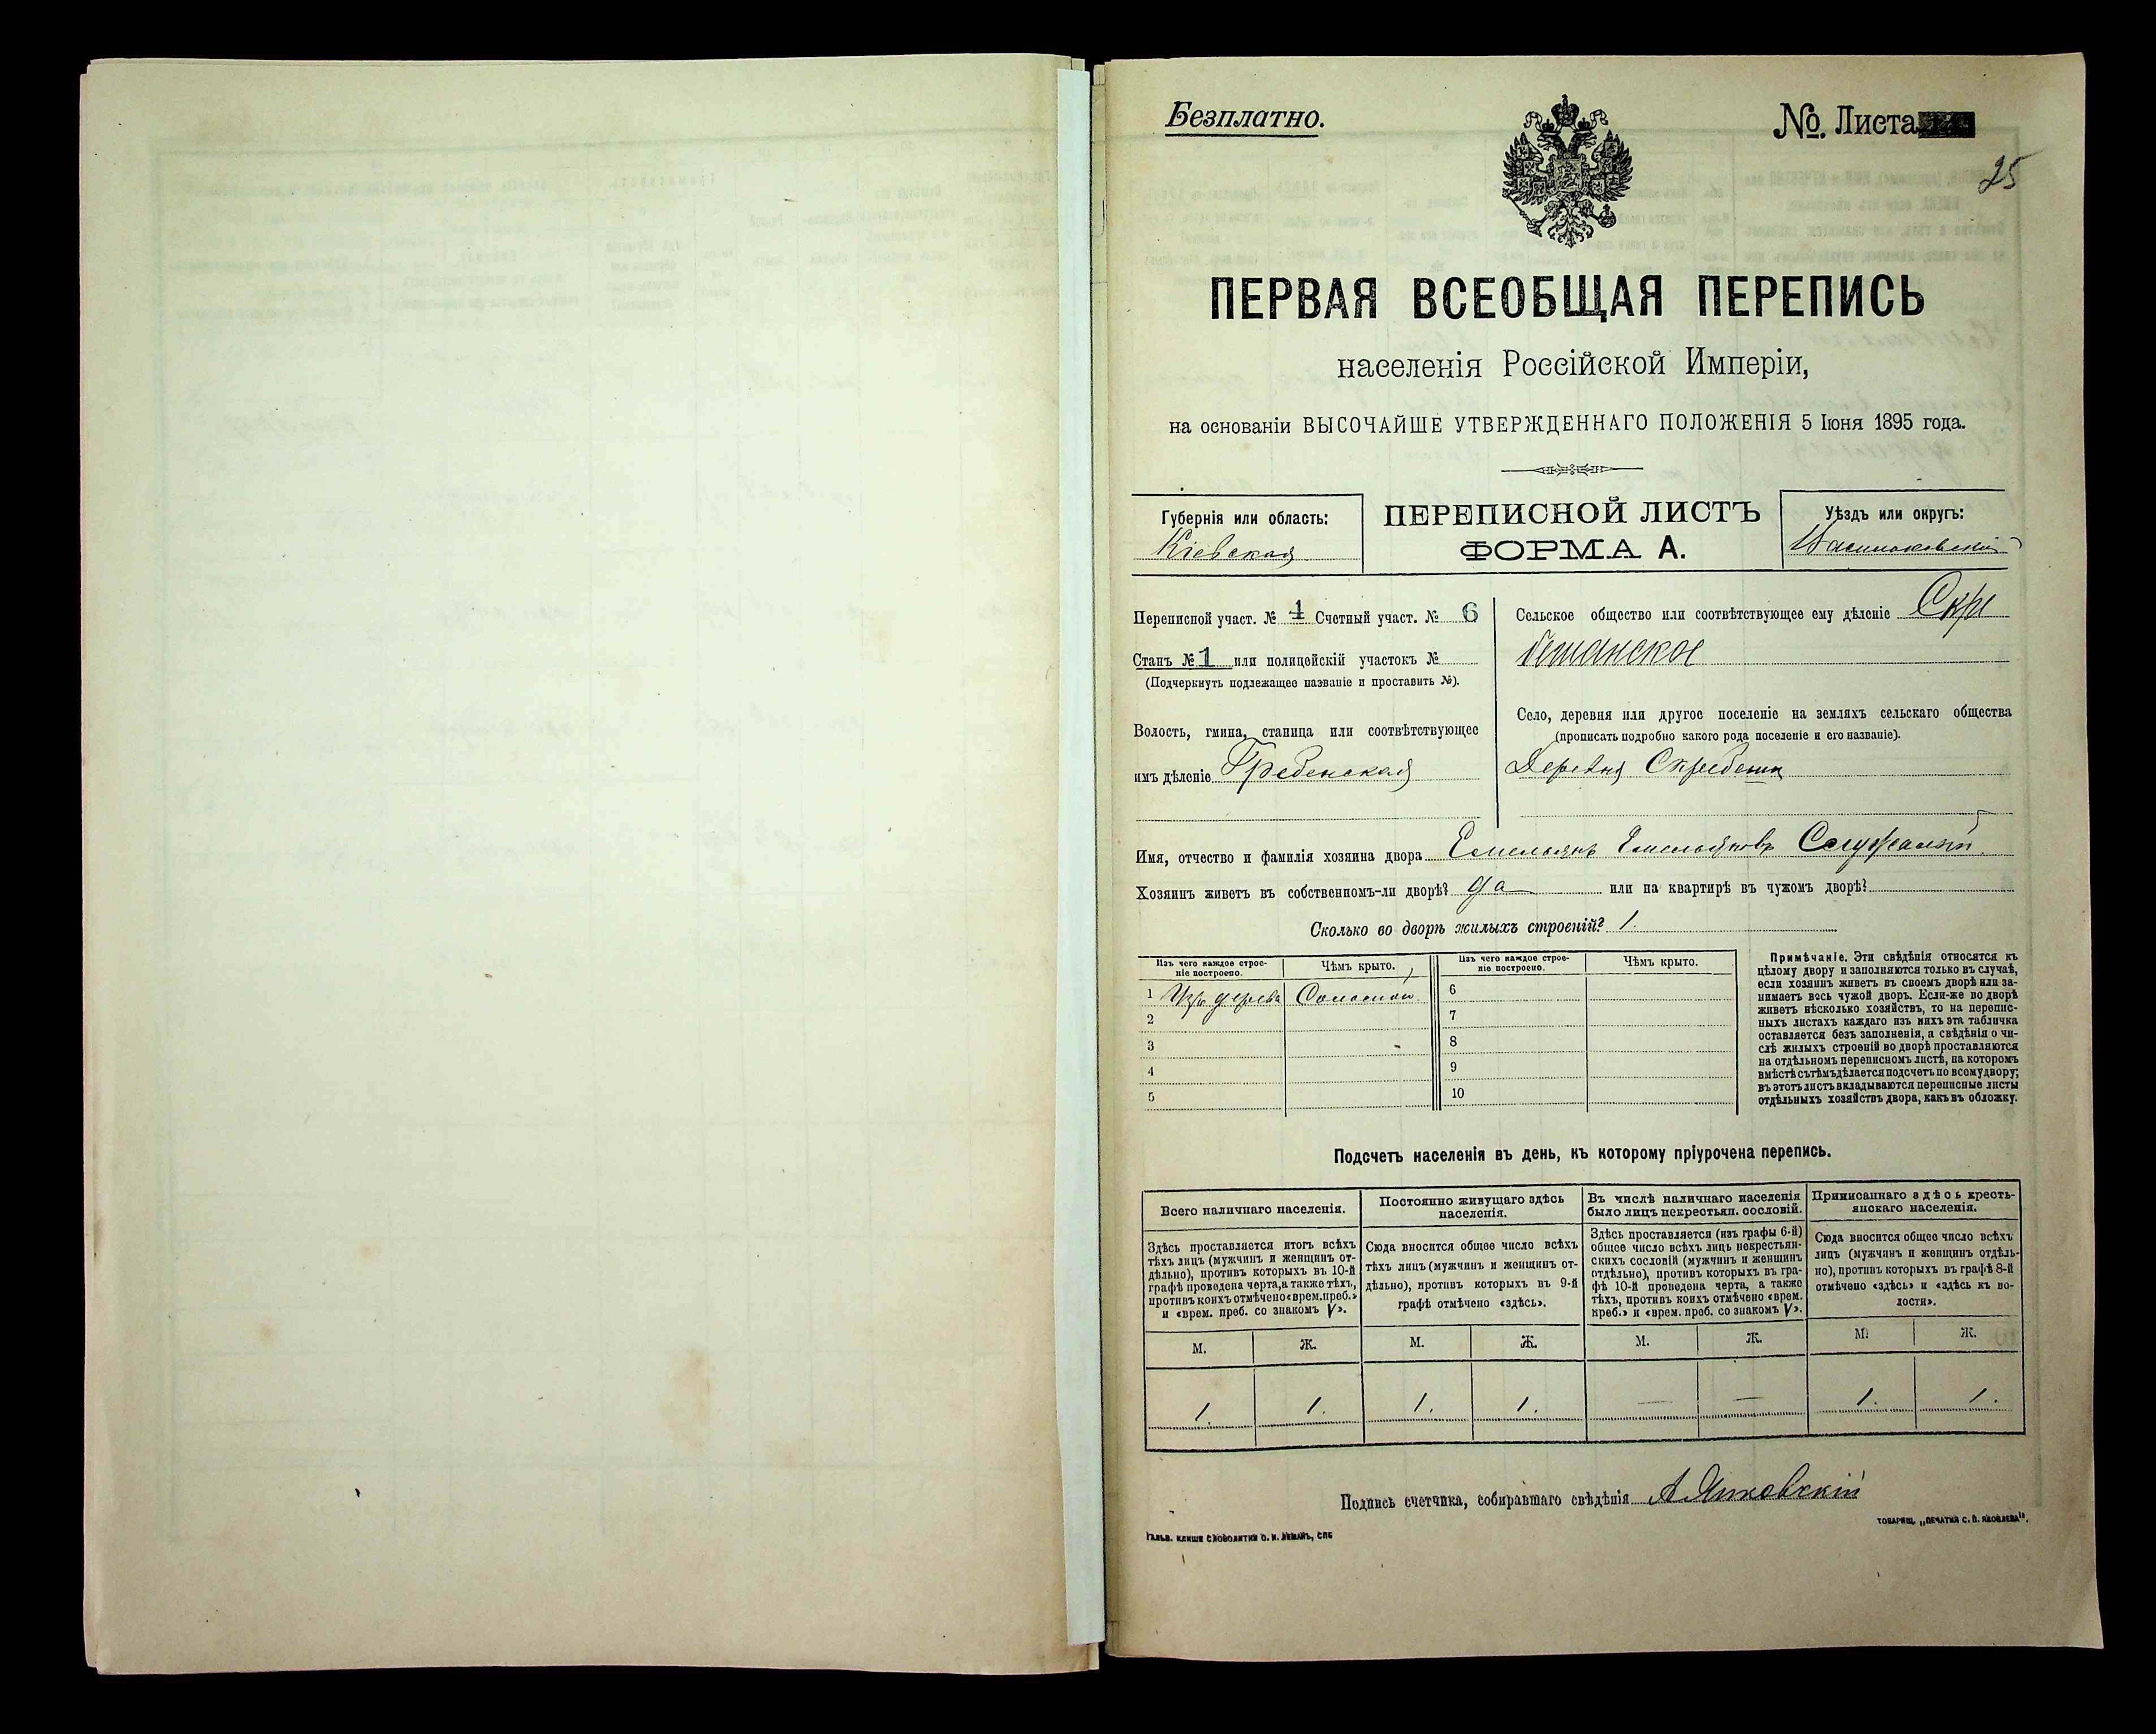 Безплатно.
№. Листа
25
ПЕРВАЯ ВСЕОБЩАЯ ПЕРЕПИСЬ
населенія Россійской Имперіи,
на основаніи ВЫСОЧАЙШЕ УТВЕРЖДЕННАГО ПОЛОЖЕНІЯ 5 Іюня 1895 года.
Губернія или область:
Кіевская
ПЕРЕПИСНОЙ ЛИСТЪ
ФОРМА А.
Уѣздъ или округъ:
Переписной участ. № 1 Счетный участ. № 6
Станъ № 1 или полицейскій участокъ №
(Подчеркнуть подлежащее названіе и проставить №).
Волость, гмина, станица или соотвѣтствующее
имъ дѣленіе Гребенская
Сельское общество или соотвѣтствующее ему дѣленіе Скре
бешанское
Село, деревня или другое поселеніе на земляхъ сельскаго общества
(прописать подробно какого рода поселеніе и его названіе).
Деревня Скребеши
Имя, отчество и фамилія хозяина двора Емельянъ Емельяновъ
Хозяинъ живетъ въ собственномъ-ли дворѣ? да или на квартирѣ въ чужомъ дворѣ?
Сколько во дворѣ жилыхъ строеній? 1.
Изъ чего каждое строе-
ніе построено.
Чѣмъ крыто.
Изъ чего каждое строе-
ніе построено.
Чѣмъ крыто.
1 дерева Соломой
2
3
4
5
6
7
8
9
10
Примѣчаніе. Эти свѣдѣнія относятся къ
цѣлому двору и заполняются только въ случаѣ,
если хозяинъ живетъ въ своемъ дворѣ или за-
нимаетъ весь чужой дворъ. Если-же во дворѣ
живетъ нѣсколько хозяйствъ, то на перепис-
ныхъ листахъ каждаго изъ нихъ эта табличка
оставляется безъ заполненія, а свѣдѣнія о чи-
слѣ жилыхъ строеній во дворѣ проставляются
на отдѣльномъ переписномъ листѣ, на которомъ
вмѣстѣ съ тѣмъ дѣлается подсчетъ по всому двору;
въ этотъ листъ вкладываются переписные листы
отдѣльныхъ хозяйствъ двора, какъ въ обложку.
Подсчетъ населенія въ день, къ которому пріурочена перепись.
Всего наличнаго населенія.
Здѣсь проставляется итогъ всѣхъ
тѣхъ лицъ (мужчинъ и женщинъ от-
дѣльно), противъ которыхъ въ 10-й
графѣ проведена черта, а также тѣхъ,
противъ коихъ отмѣчено «врем. преб.»
и «врем. преб. со знакомъ V».
Постоянно живущаго здѣсь
населенія.
Сюда вносится общее число всѣхъ
тѣхъ лицъ (мужчинъ и женщинъ от-
дѣльно), противъ которыхъ въ 9-й
графѣ отмѣчено «здѣсь».
Въ числѣ наличнаго населенія
было лицъ некрестьян. сословій.
Здѣсь проставляется (изъ графы 6-й)
общее число всѣхъ лицъ некрестьян-
скихъ сословій (мужчинъ и женщинъ
отдѣльно), противъ которыхъ въ гра-
фѣ 10-й проведена черта, а также
тѣхъ, противъ коихъ отмѣчено «врем.
преб.» и «врем. преб. со знакомъ V».
Приписаннаго здѣсь кресть-
янскаго населенія.
Сюда вносится общее число всѣхъ
лицъ (мужчинъ и женщинъ отдѣль-
но), противъ которыхъ въ графѣ 8-й
отмѣчено «здѣсь» и «здѣсь къ во-
лости».
М. Ж. М. Ж. М. Ж. М. Ж.
1. 1. 1. 1. — — 1. 1.
Подпись счетчика, собиравшаго свѣдѣнія
Гальв. клише словолитни О. И. Леманъ, СПБ
Товарищ. „Печатня С. П. Яковлева".